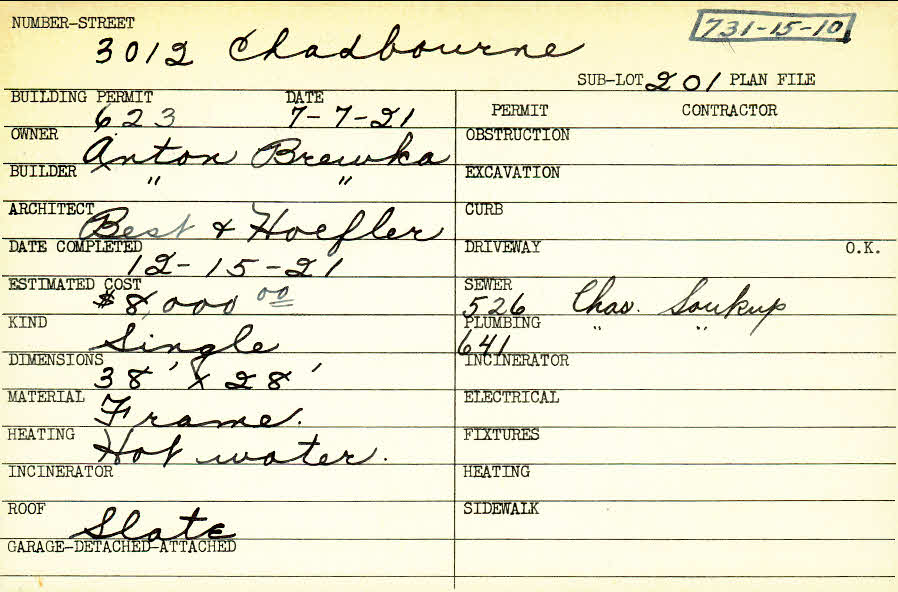 NUMBER-STREET
3012 Chadbourne
731-15-10
SUB-LOT 201 PLAN FILE
BUILDING PERMIT DATE
623 7-7-21
OWNER
Anton Brewka
BUILDER " "
ARCHITECT
Best & Hoefler
DATE COMPLETED
12-15-21
ESTIMATED COST
$8,000 00
KIND
Single
DIMENSIONS
38' x 28'
MATERIAL
Frame.
HEATING
Hot water.
INCINERATOR
ROOF
Slate
GARAGE-DETACHED-ATTACHED
PERMIT CONTRACTOR
OBSTRUCTION
EXCAVATION
CURB
DRIVEWAY O.K.
SEWER
526 Chas. Soukup
PLUMBING " "
641
INCINERATOR
ELECTRICAL
FIXTURES
HEATING
SIDEWALK